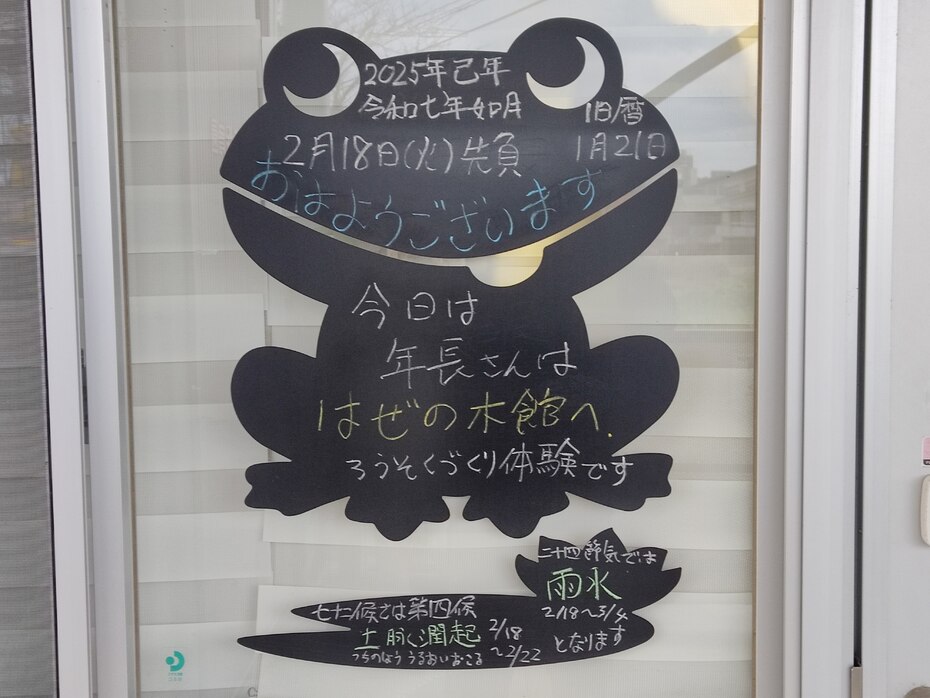 2025年己年
令和七年如月
旧暦
2月18日(火)先負
1月21日
おはようございます
今日は
年長さんは
はぜの木館へ.
ろうそくづくり体験です
二十四節気では
雨水
2/18〜3/4
となります
七十二候では第四候
土脉潤起
つちのしょう うるおいおこる
2/18
〜2/22